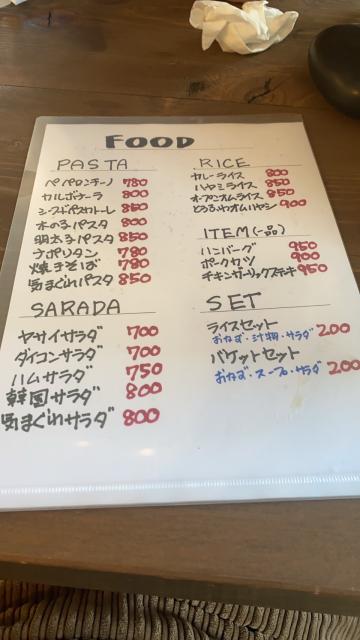 FOOD
PASTA
ペペロンチーノ 780
カルボナーラ 800
シーフードペスカトーレ 850
木の子パスタ 800
明太子パスタ 850
ナポリタン 780
焼きそば 780
気まぐれパスタ 850
SARADA
ヤサイサラダ 700
ダイコンサラダ 700
ハムサラダ 750
韓国サラダ 800
気まぐれサラダ 800
RICE
カレーライス 800
ハヤシライス 850
オープンオムライス 850
とろふわオムハヤシ 900
ITEM(一品)
ハンバーグ 950
ポークカツ 900
チキンガーリックステキ 950
SET
ライスセット
おかず・汁物・サラダ 200
バケットセット
おかず・スープ・サラダ 200